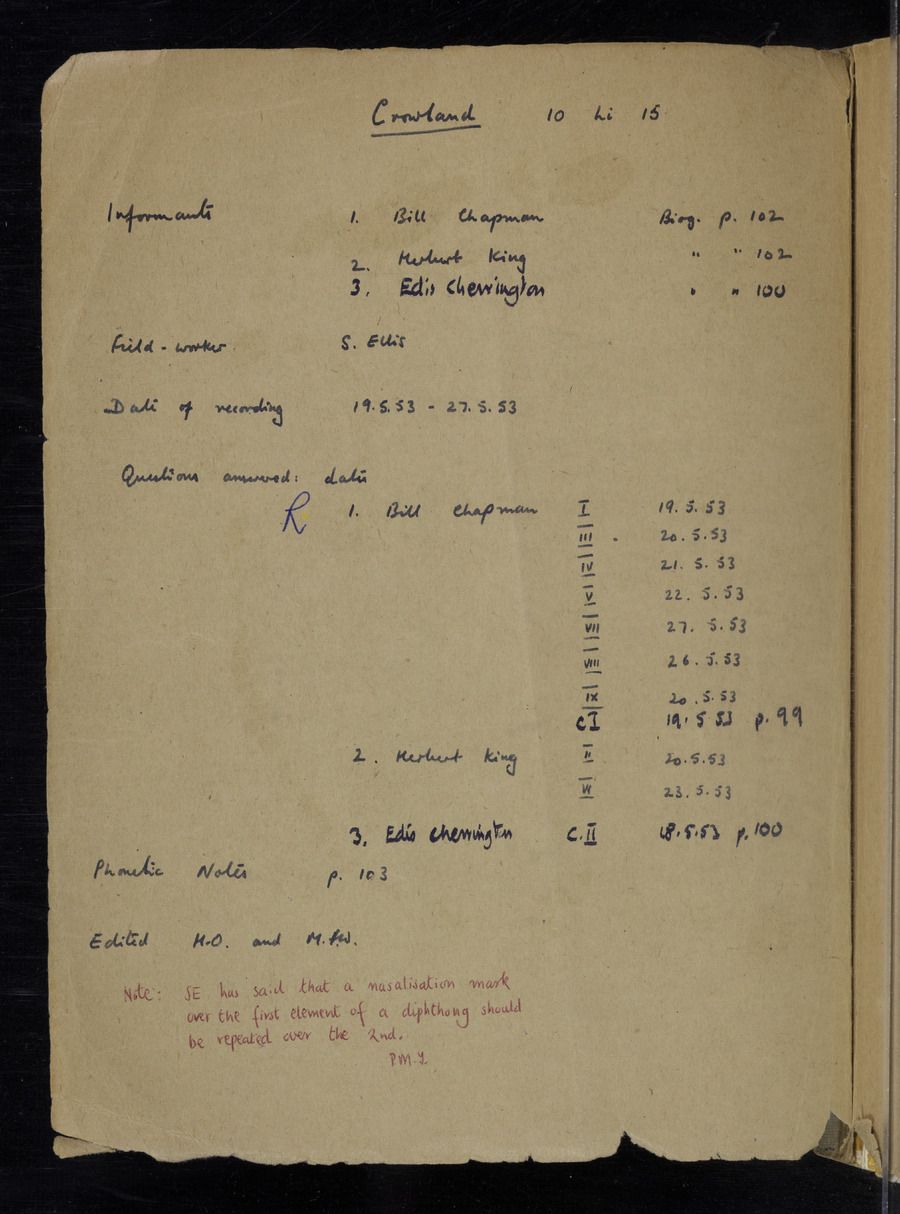 Crowland 10 Li 15
Informants 1. Bill Chapman Biog. p. 102
2. Herbert King " " 102
3. Edis Cherrington " " 100
Field-worker S. Ellis
Date of recording 19.5.53 - 27.5.53
Questions answered: date
R 1. Bill Chapman I 19.5.53
III 20.5.53
IV 21.5.53
V 22.5.53
VII 27.5.53
VIII 26.5.53
IX 20.5.53
CI 19.5.53 p.99
2. Herbert King II 20.5.53
VI 23.5.53
3. Edis Cherrington C.II 18.5.53 p.100
Phonetic Notes p. 103
Edited H.O. and
Note: SE has said that a nasalisation mark
over the first element of a diphthong should
be repeated over the 2nd.